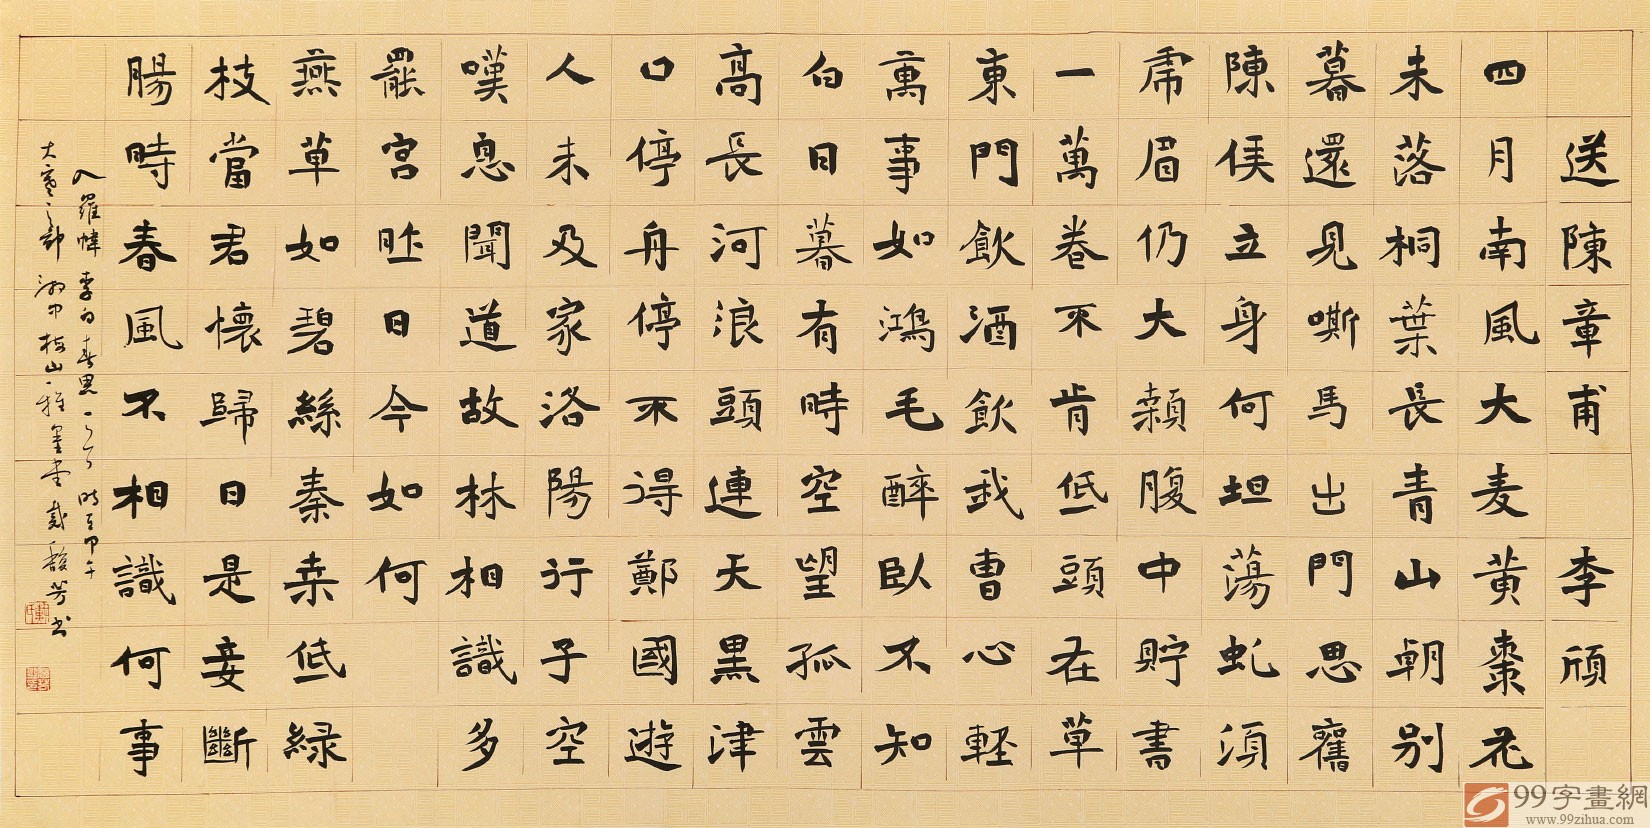 送陳章甫 李頎
四月南風大麦黄棗花
未落桐葉長青山朝別
暮還見嘶馬出門思舊
陳侯立身何坦蕩虬須
虎眉仍大顙腹中貯書
一萬卷不肯低頭在草
東門飲酒飲我曹心軽
萬事如鴻毛醉臥不知
白日暮有時空望孤雲
高長河浪頭連天黒津
口停舟停不得鄭國遊
人未及家洛陽行子空
嘆息聞道故林相識多
罷官昨日今如何
燕草如碧絲秦桒低緑
枝當君懷歸日是妾斷
腸時春風不相識何事
入羅幃 李白春思一首 時在甲午
大寒之節 梅山 戴馥芳书
99字畫網
www.99zihua.com